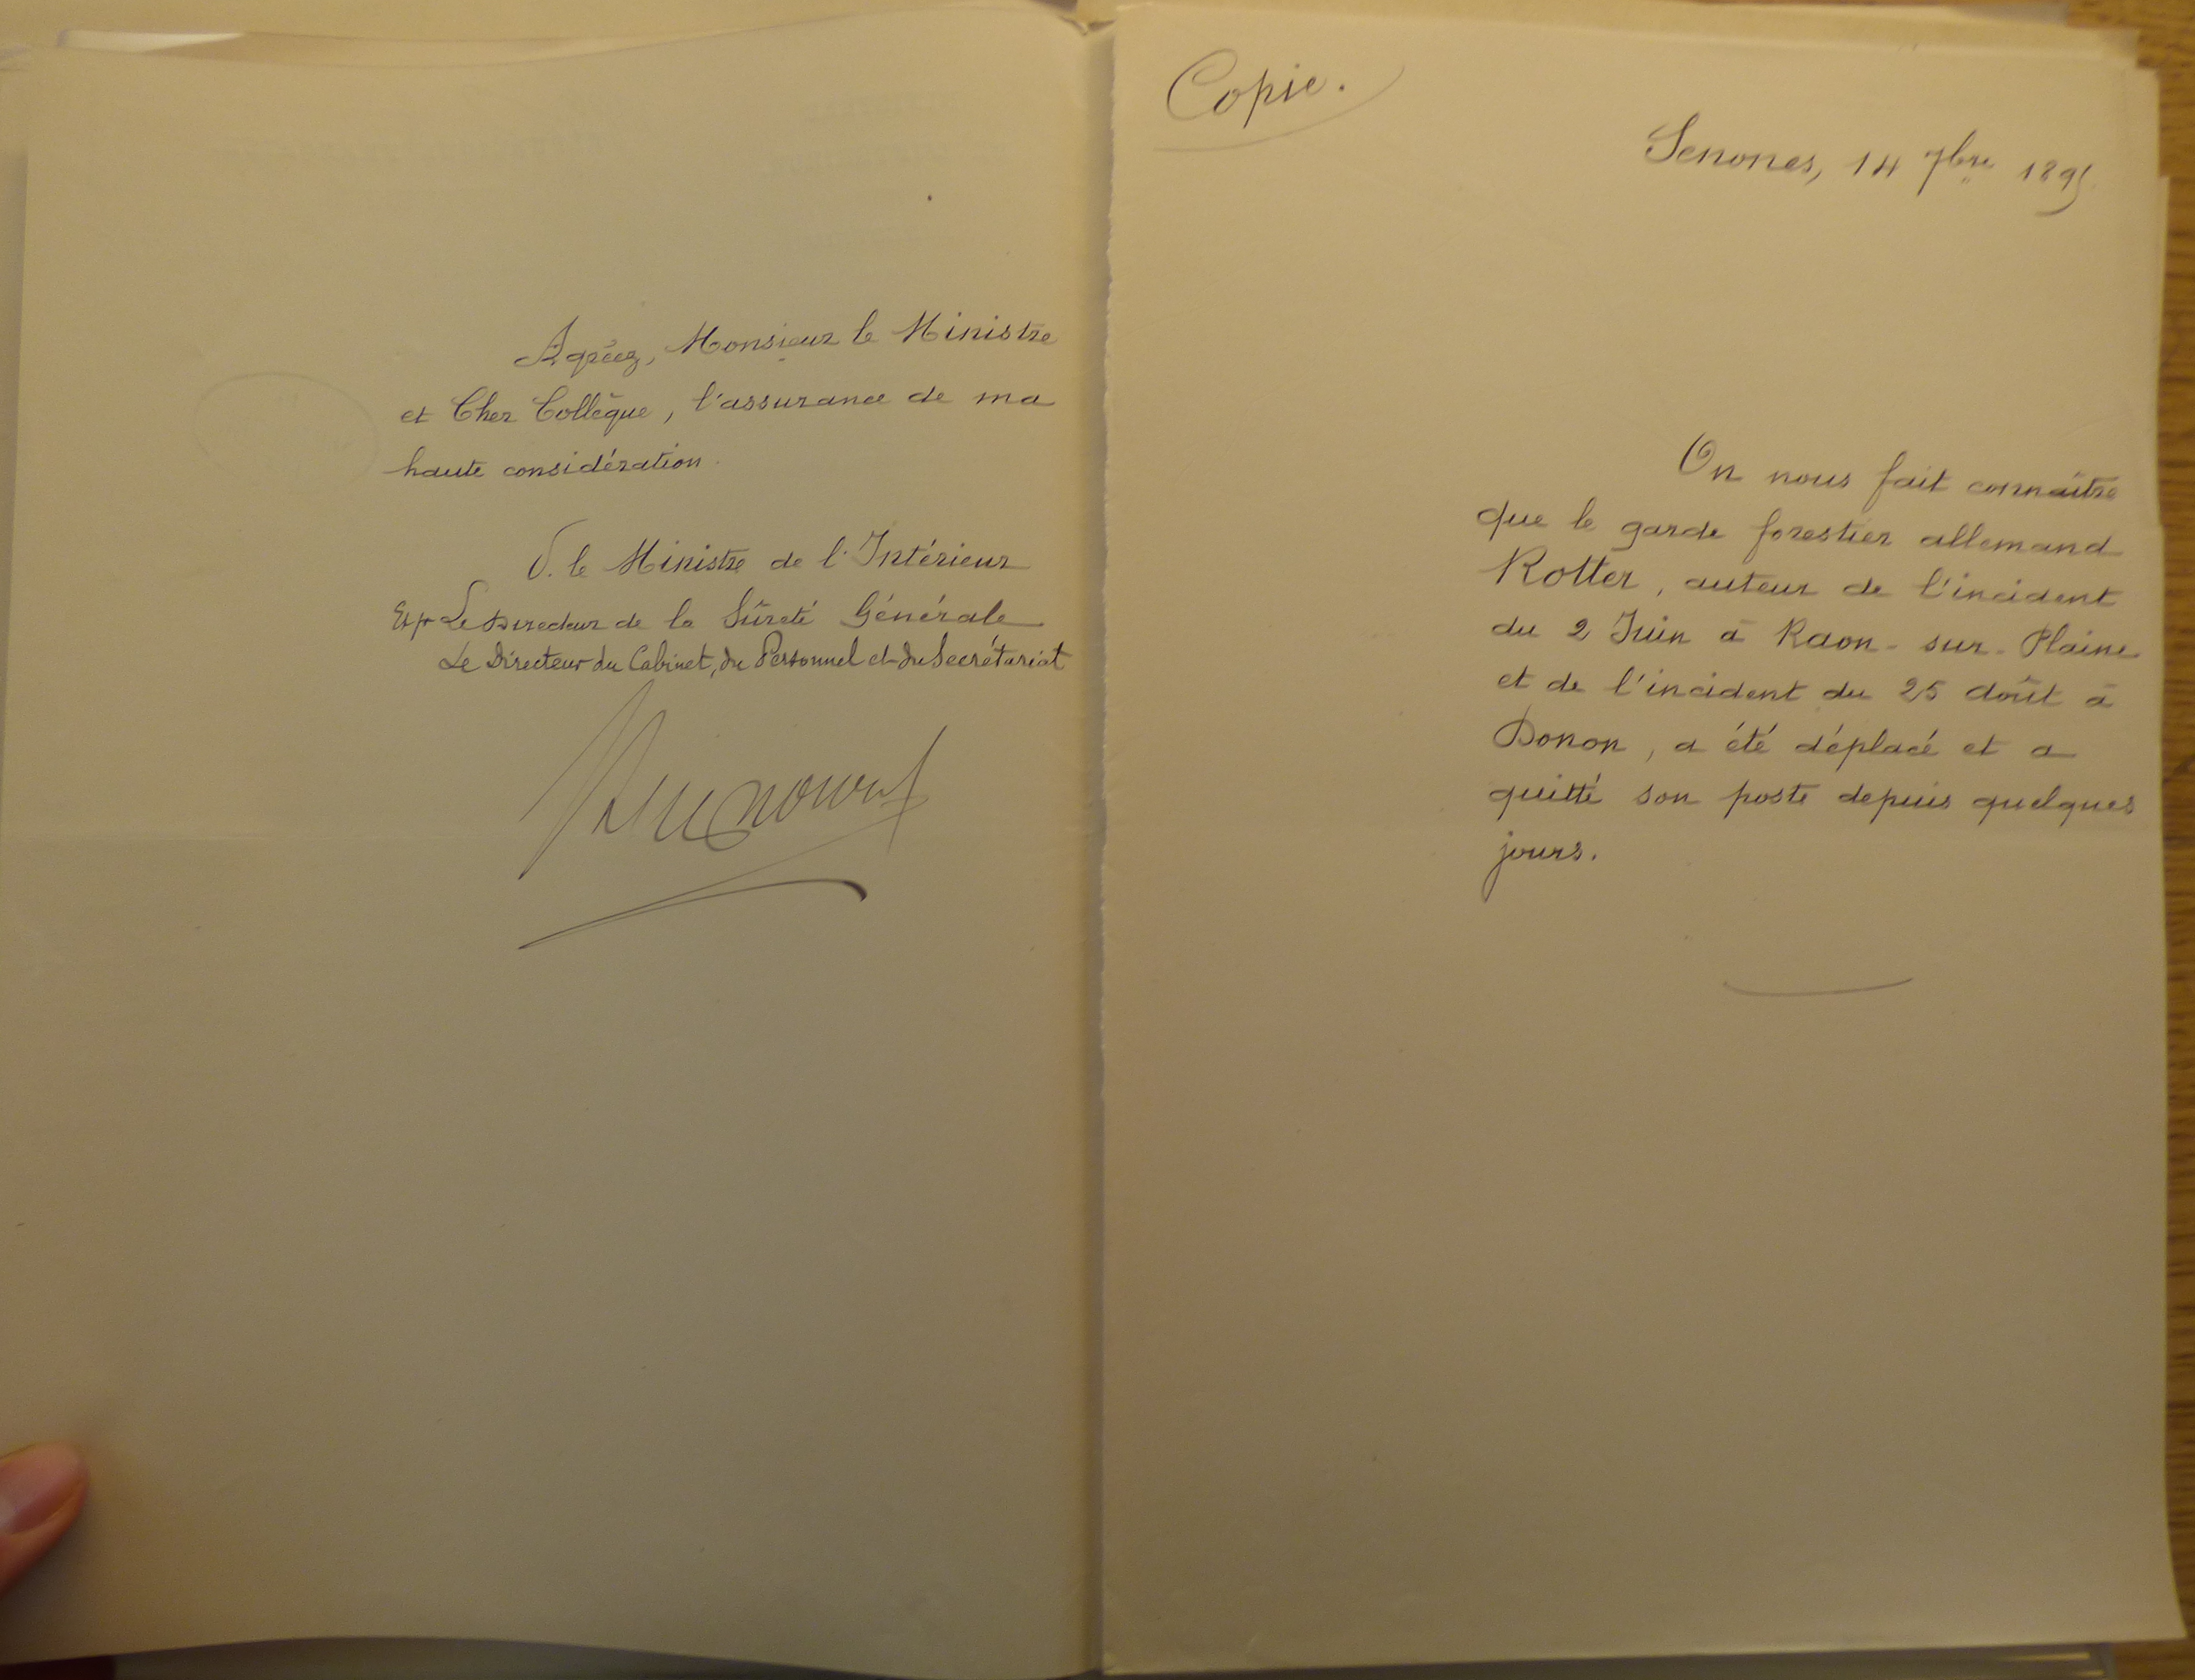 Agréez, Monsieur le Ministre
et Cher Collègue, l'assurance de ma
haute considération.
P. le Ministre de l'Intérieur
Et pr Le Directeur de la Sûreté Générale
Le Directeur du Cabinet, du Personnel et du Secrétariat
Copie.
Senones, 14 7bre 1895
On nous fait connaître
que le garde forestier allemand
Rotter, auteur de l'incident
du 2 Juin à Raon-sur-Plaine
et de l'incident du 25 Août à
Donon, a été déplacé et a
quitté son poste depuis quelques
jours.